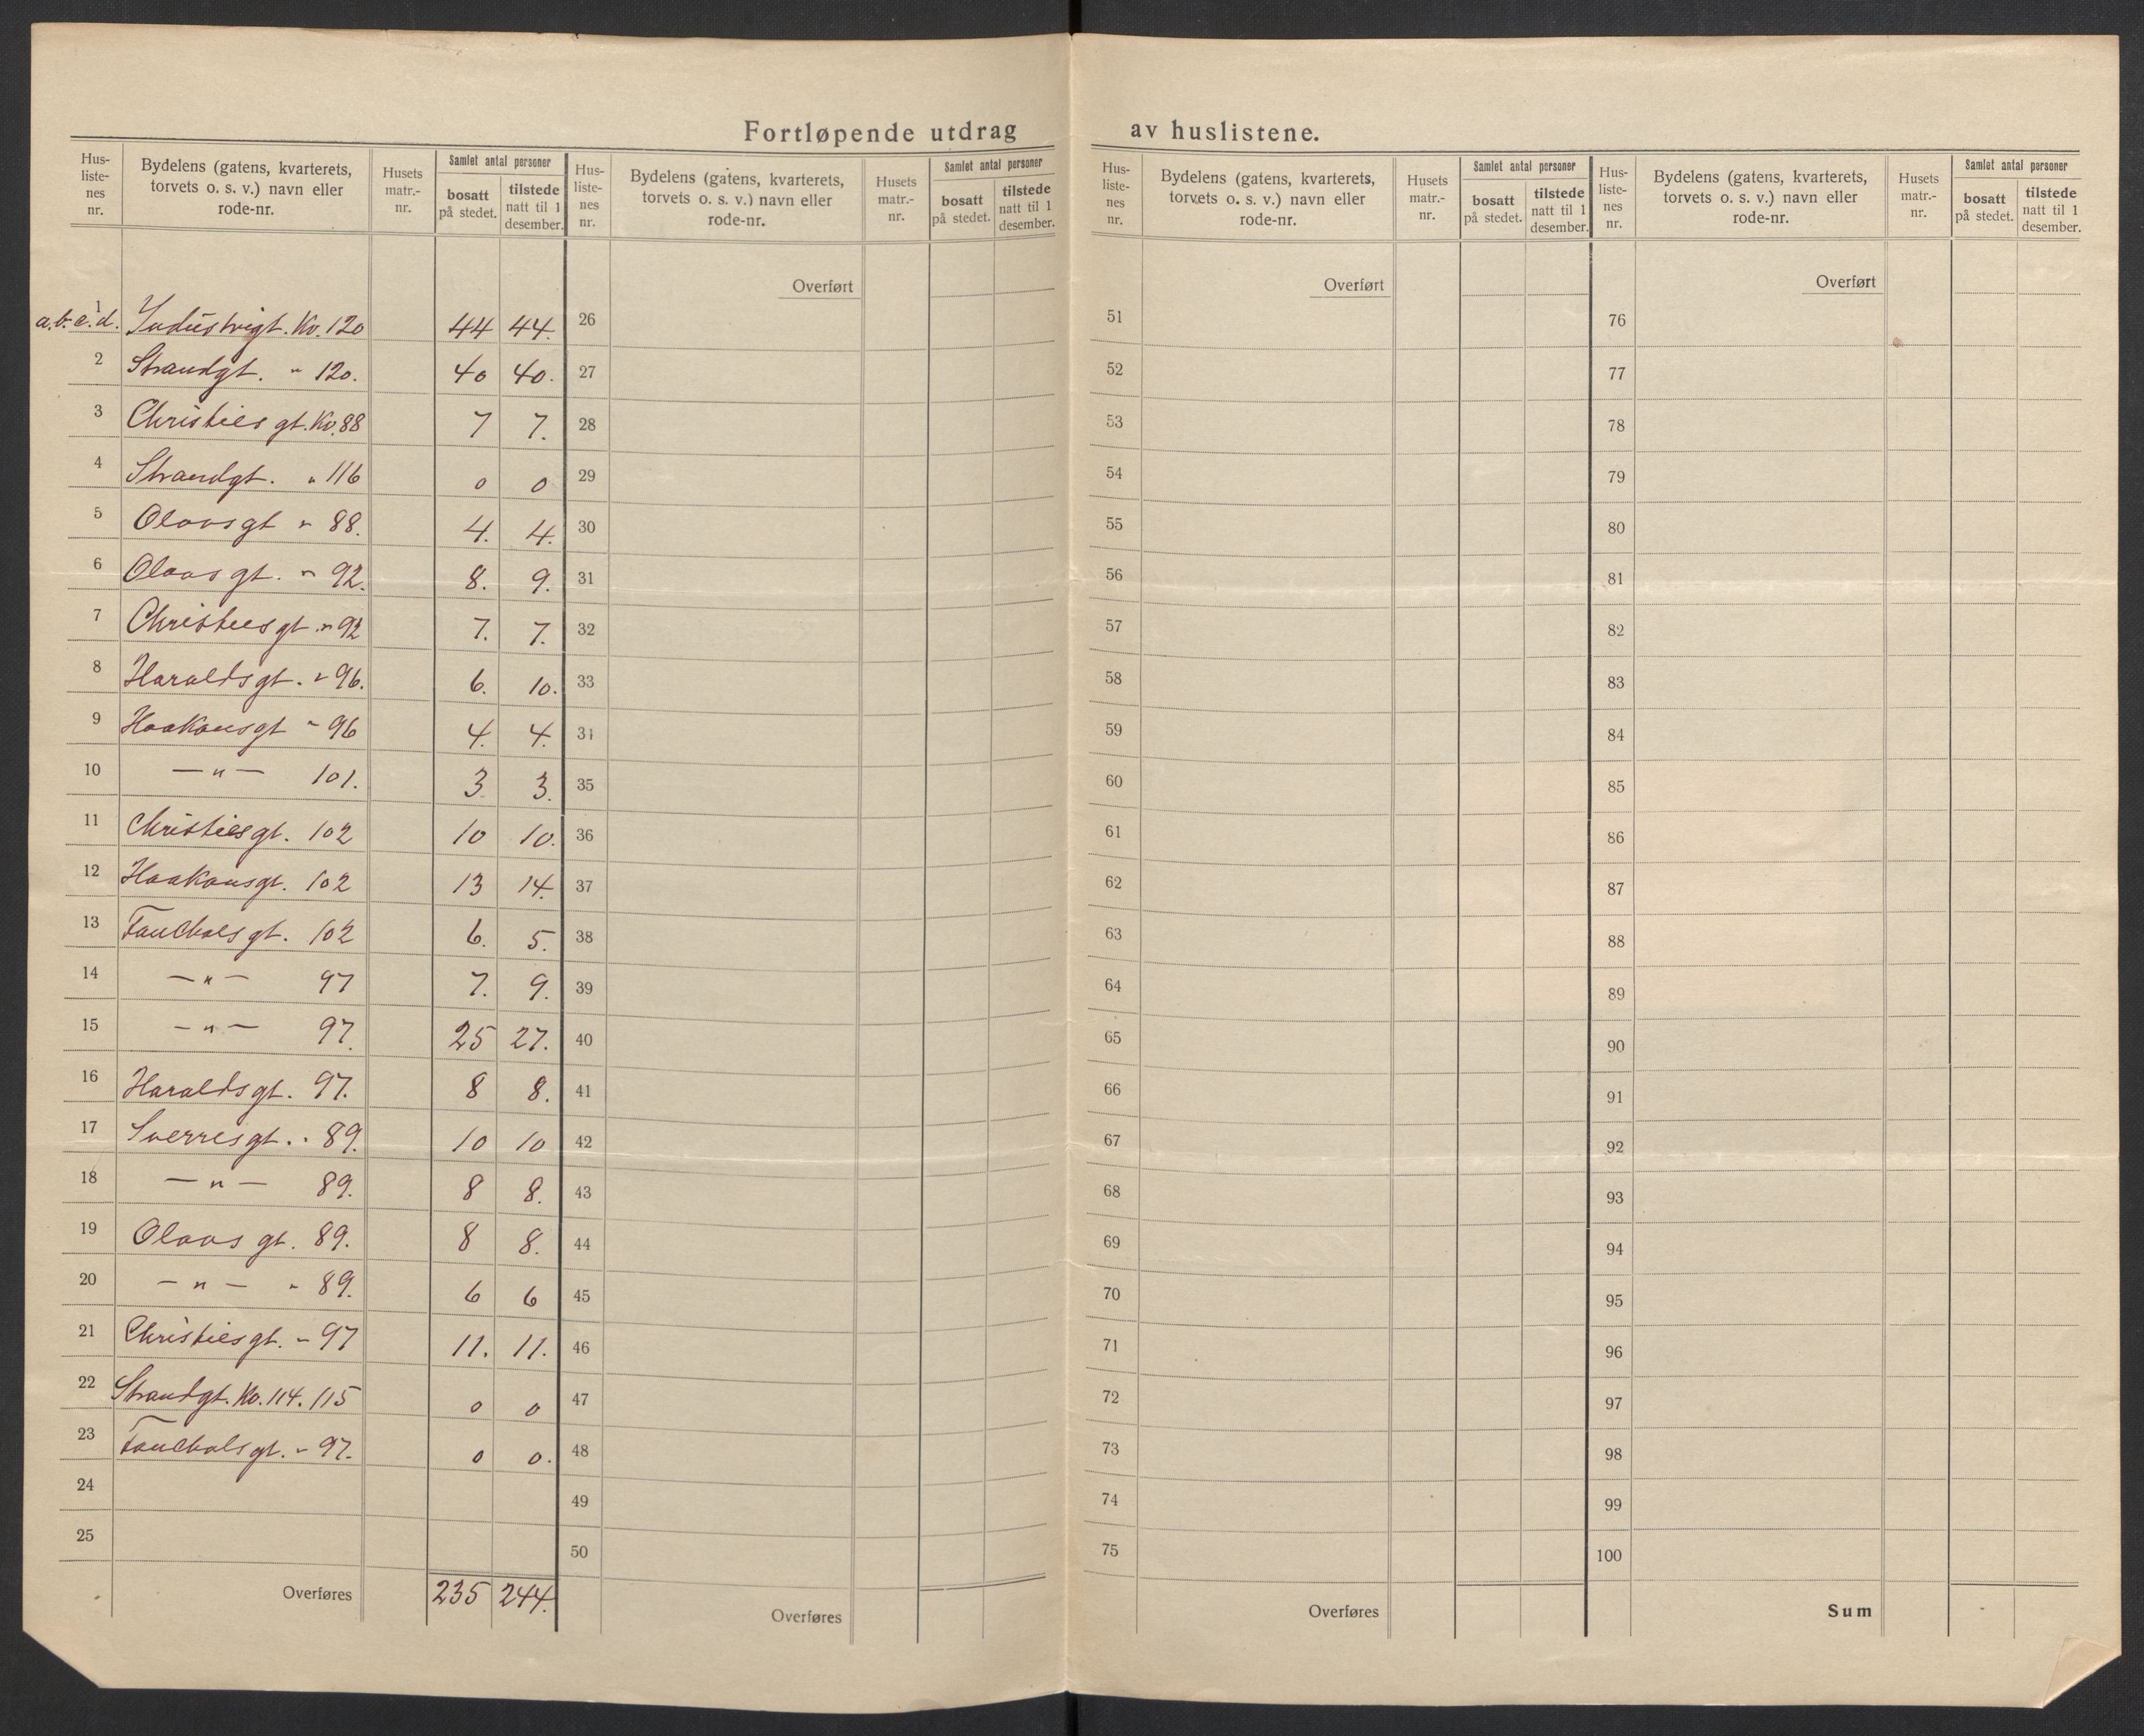 Fortløpende utdrag av huslistene.
Hus-listenes nr. Bydelens (gatens, kvarterets, torvets o. s. v.) navn eller rode-nr. Husets matr.-nr. Samlet antal personer bosatt på stedet. tilstede natt til 1 desember.
Hus-listenes nr. Bydelens (gatens, kvarterets, torvets o. s. v.) navn eller rode-nr. Husets matr.-nr. Samlet antal personer bosatt på stedet. tilstede natt til 1 desember.
Hus-listenes nr. Bydelens (gatens, kvarterets, torvets o. s. v.) navn eller rode-nr. Husets matr.-nr. Samlet antal personer bosatt på stedet. tilstede natt til 1 desember.
Hus-listenes nr. Bydelens (gatens, kvarterets, torvets o. s. v.) navn eller rode-nr. Husets matr.-nr. Samlet antal personer bosatt på stedet. tilstede natt til 1 desember.
Overført Overført Overført
1 a.b.c.d. Industrigt. Kv. 120 44 44. 26 51 76
2 Strandgt. " 120. 40 40. 27 52 77
3 Christies gt. Kv. 88 7 7. 28 53 78
4 Strandgt. " 116 0 0 29 54 79
5 Olavsgt " 88. 4. 4. 30 55 80
6 Olavs gt. " 92. 8. 9. 31 56 81
7 Christiesgt. " 92 7. 7. 32 57 82
8 Haraldsgt. " 96. 6. 10. 33 58 83
9 Haakonsgt " 96 4. 4. 34 59 84
10 — " — 101. 3 3. 35 60 85
11 Christiesgt. 102 10 10. 36 61 86
12 Haakonsgt. 102 13 14. 37 62 87
13 Fauchalsgt. 102 6. 5. 38 63 88
14 — " — 97 7. 9. 39 64 89
15 — " — 97. 25 27. 40 65 90
16 Haraldsgt. 97. 8 8. 41 66 91
17 Sverresgt. " 89. 10 10 42 67 92
18 — " — 89. 8 8. 43 68 93
19 Olavs gt. 89. 8 8. 44 69 94
20 — " — " 89. 6 6 45 70 95
21 Christiesgt. " 97 11. 11. 46 71 96
22 Strandgt. Kv. 114. 115 0 0 47 72 97
23 Fauchalsgt. " 97. 0 0. 48 73 98
24 49 74 99
25 50 75 100
Overføres 235 244. Overføres Overføres Sum